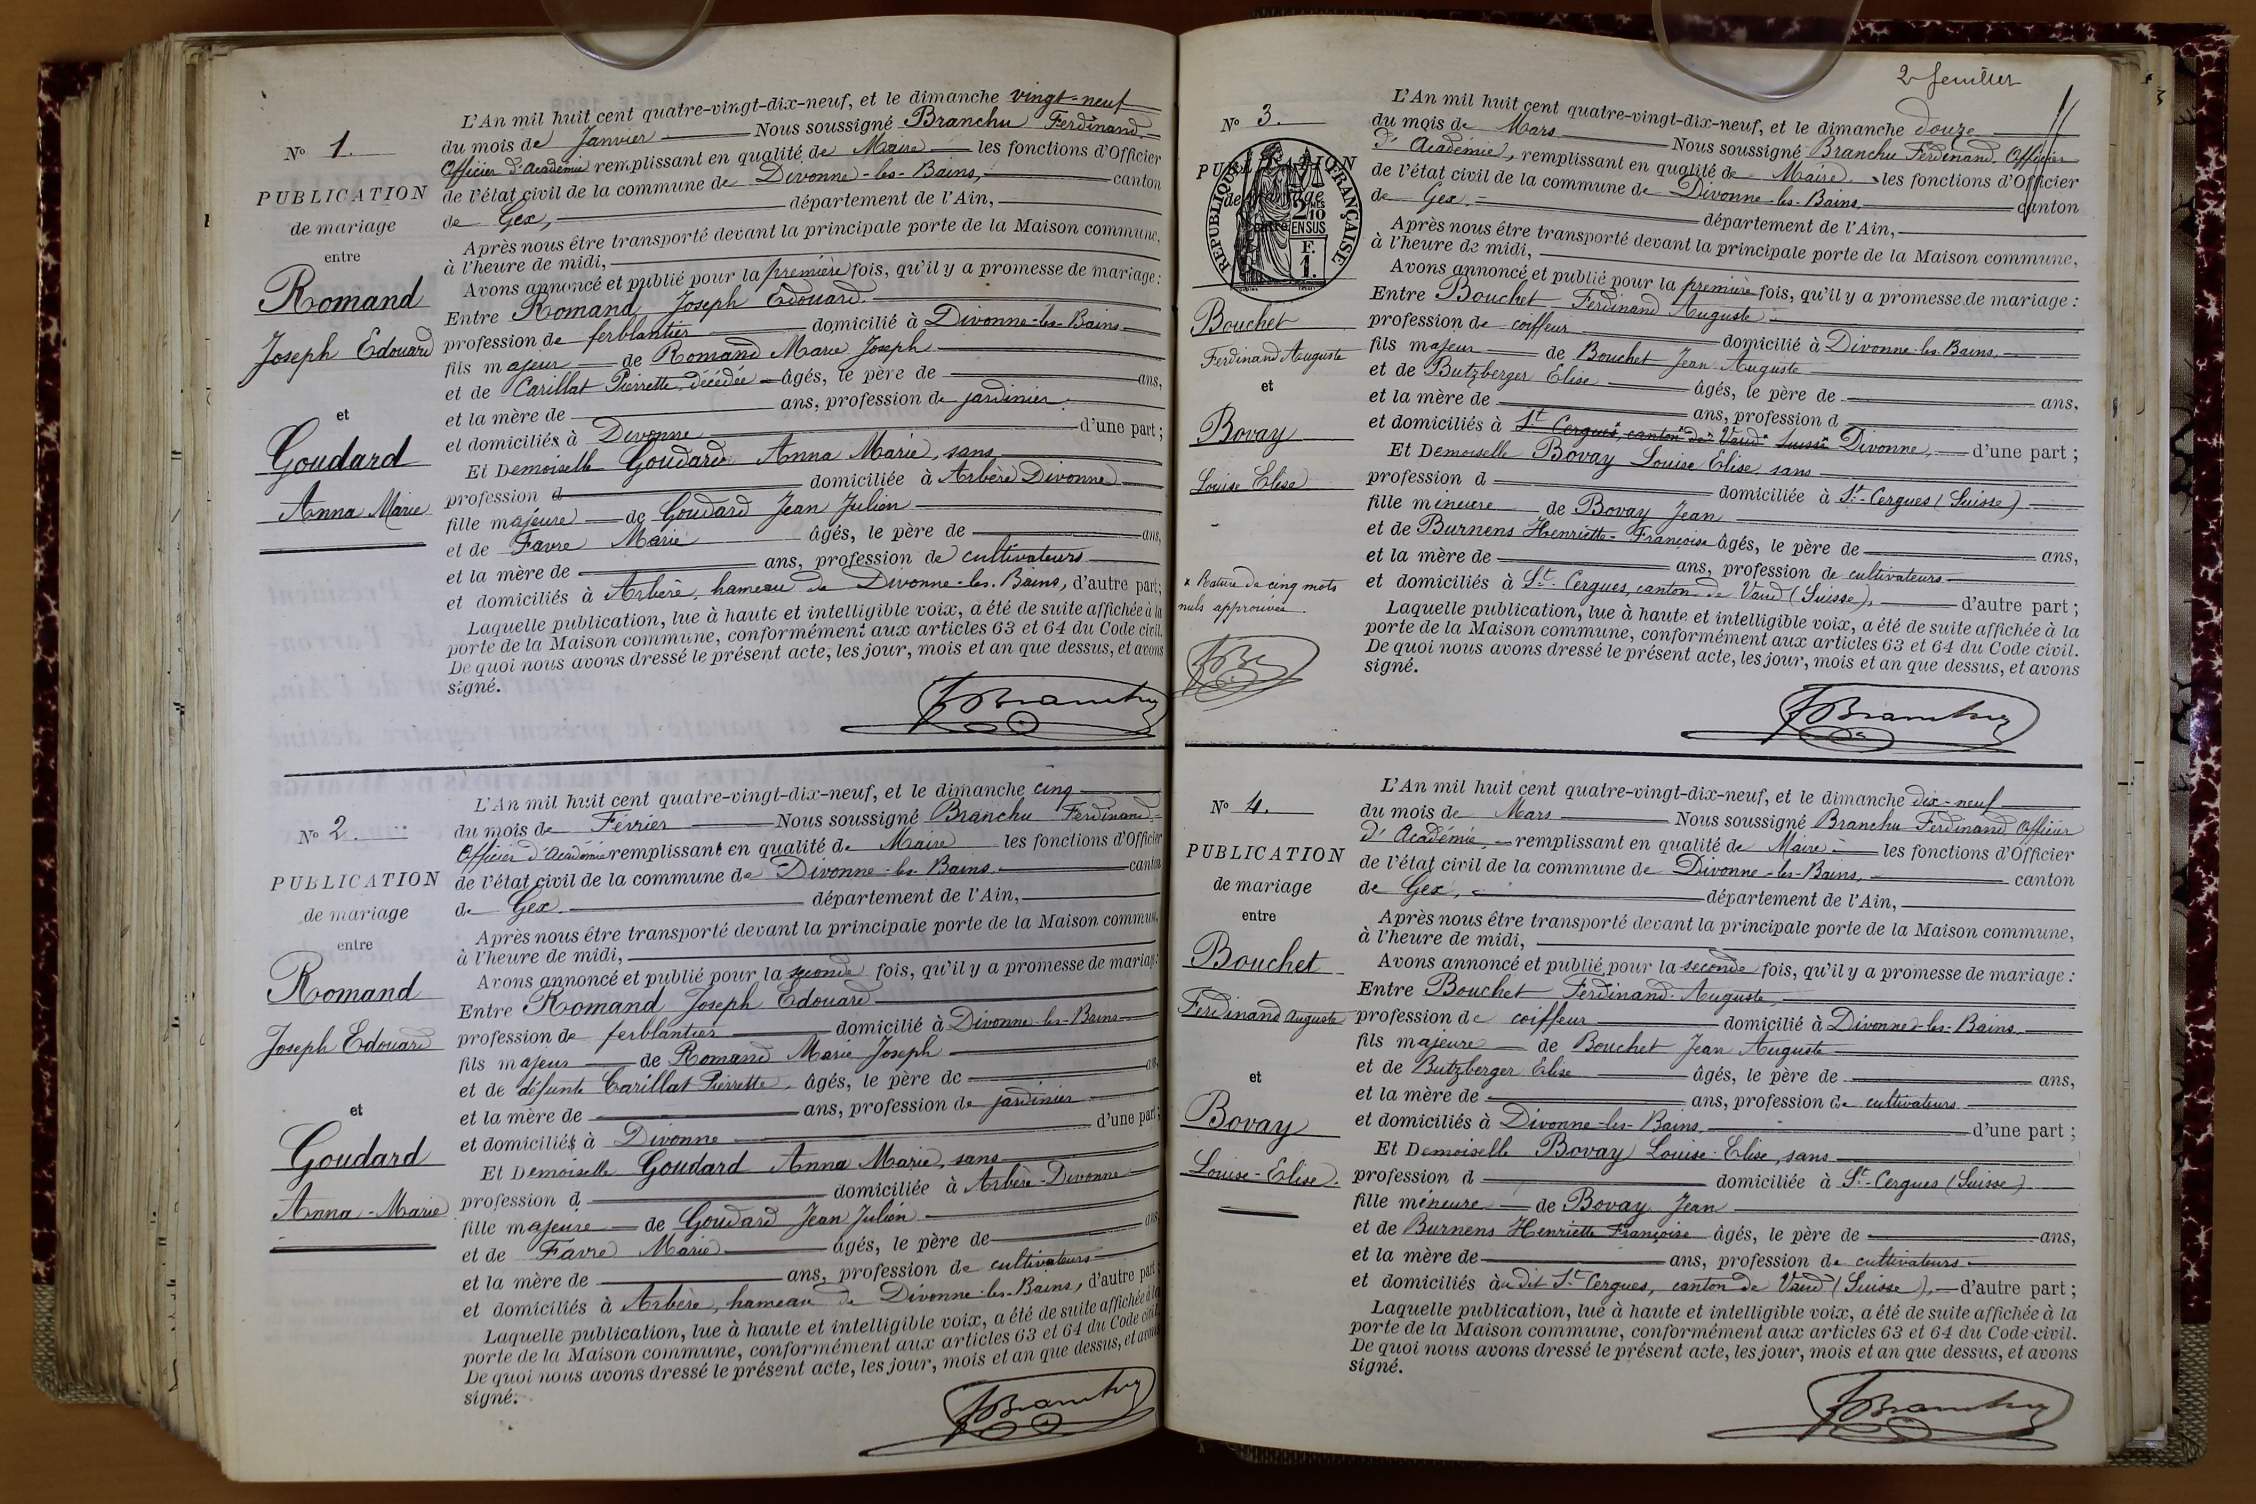 L'An mil huit cent quatre-vingt-dix-neuf, et le dimanche vingt-neuf
N° 1.
du mois de Janvier Nous soussigné Branchu Ferdinand
Officier d'Académie remplissant en qualité de Maire les fonctions d'Officier
PUBLICATION
de l'état civil de la commune de Divonne-les-Bains, canton
de mariage
de Gex, département de l'Ain,
entre
Après nous être transporté devant la principale porte de la Maison commune,
à l'heure de midi,
Romand
Avons annoncé et publié pour la première fois, qu'il y a promesse de mariage :
Entre Romand Joseph Edouard
Joseph Edouard
profession de ferblantier domicilié à Divonne-les-Bains
fils majeur de Romand Marie Joseph
et de Carillat Pierrette décédée âgés, le père de ans,
et
et la mère de ans, profession de jardinier
et domiciliés à Divonne d'une part ;
Goudard
Et Demoiselle Goudard Anna Marie, sans
Anna Marie
profession d domiciliée à Arbère Divonne
fille majeure de Goudard Jean Julien
et de Favre Marie âgés, le père de ans,
et la mère de ans, profession de cultivateurs
et domiciliés à Arbère, hameau de Divonne-les-Bains, d'autre part ;
Laquelle publication, lue à haute et intelligible voix, a été de suite affichée à la
porte de la Maison commune, conformément aux articles 63 et 64 du Code civil.
De quoi nous avons dressé le présent acte, les jour, mois et an que dessus, et avons
signé.
FBranchu
L'An mil huit cent quatre-vingt-dix-neuf, et le dimanche cinq
N° 2.
du mois de Février Nous soussigné Branchu Ferdinand
Officier d'Académie remplissant en qualité de Maire les fonctions d'Officier
PUBLICATION
de l'état civil de la commune de Divonne-les-Bains canton
de mariage
de Gex. département de l'Ain,
entre
Après nous être transporté devant la principale porte de la Maison commune,
à l'heure de midi,
Romand
Avons annoncé et publié pour la seconde fois, qu'il y a promesse de mariage :
Entre Romand Joseph Edouard
Joseph Edouard
profession de ferblantier domicilié à Divonne-les-Bains
fils majeur de Romand Marie Joseph
et de défunte Carillat Pierrette, âgés, le père de ans
et
et la mère de ans, profession de jardinier
et domiciliés à Divonne d'une part ;
Goudard
Et Demoiselle Goudard Anna Marie, sans
Anna-Marie
profession d domiciliée à Arbère-Divonne
fille majeure de Goudard Jean Julien
et de Favre Marie âgés, le père de ans
et la mère de ans, profession de cultivateurs
et domiciliés à Arbère, hameau de Divonne-les-Bains, d'autre part ;
Laquelle publication, lue à haute et intelligible voix, a été de suite affichée à la
porte de la Maison commune, conformément aux articles 63 et 64 du Code civil.
De quoi nous avons dressé le présent acte, les jour, mois et an que dessus, et avons
signé.
FBranchu
L'An mil huit cent quatre-vingt-dix-neuf, et le dimanche douze
N° 3.
du mois de Mars Nous soussigné Branchu Ferdinand Officier
d'Académie, remplissant en qualité de Maire les fonctions d'Officier
PUBLICATION
de l'état civil de la commune de Divonne-les-Bains canton
de mariage
de Gex. département de l'Ain,
entre
RÉPUBLIQUE FRANÇAISE
2/10 EN SUS
F.
1.
Après nous être transporté devant la principale porte de la Maison commune,
à l'heure de midi,
Avons annoncé et publié pour la première fois, qu'il y a promesse de mariage :
Bouchet
Entre Bouchet Ferdinand Auguste
profession de coiffeur domicilié à Divonne-les-Bains.
Ferdinand Auguste
fils majeur de Bouchet Jean Auguste
et
et de Butzberger Elise âgés, le père de ans,
et la mère de ans, profession d
Bovay
et domiciliés à St Cergues, canton de Vaud Suisse Divonne, d'une part ;
Et Demoiselle Bovay Louise Elise sans
Louise Elise
profession d domiciliée à St-Cergues (Suisse)
fille mineure de Bovay Jean
et de Burnens Henriette-Françoise âgés, le père de ans,
et la mère de ans, profession de cultivateurs
x Rature de cinq mots
nuls approuvée.
et domiciliés à St-Cergues, canton de Vaud (Suisse), d'autre part ;
Laquelle publication, lue à haute et intelligible voix, a été de suite affichée à la
porte de la Maison commune, conformément aux articles 63 et 64 du Code civil.
De quoi nous avons dressé le présent acte, les jour, mois et an que dessus, et avons
signé.
FBranchu
L'An mil huit cent quatre-vingt-dix-neuf, et le dimanche dix-neuf
N° 4.
du mois de Mars Nous soussigné Branchu Ferdinand Officier
d'Académie remplissant en qualité de Maire les fonctions d'Officier
PUBLICATION
de l'état civil de la commune de Divonne-les-Bains, canton
de mariage
de Gex, département de l'Ain,
entre
Après nous être transporté devant la principale porte de la Maison commune,
à l'heure de midi,
Bouchet
Avons annoncé et publié pour la seconde fois, qu'il y a promesse de mariage :
Entre Bouchet Ferdinand Auguste
Ferdinand Auguste
profession de coiffeur domicilié à Divonne-les-Bains
fils majeure de Bouchet Jean Auguste
et
et de Butzberger Elise âgés, le père de ans,
et la mère de ans, profession de cultivateurs
Bovay
et domiciliés à Divonne-les-Bains d'une part ;
Et Demoiselle Bovay Louise-Elise, sans
Louise-Elise.
profession d domiciliée à St-Cergues (Suisse)
fille mineure de Bovay Jean
et de Burnens Henriette Françoise âgés, le père de ans,
et la mère de ans, profession de cultivateurs
et domiciliés àu dit St-Cergues, canton de Vaud (Suisse), d'autre part ;
Laquelle publication, lue à haute et intelligible voix, a été de suite affichée à la
porte de la Maison commune, conformément aux articles 63 et 64 du Code civil.
De quoi nous avons dressé le présent acte, les jour, mois et an que dessus, et avons
signé.
FBranchu